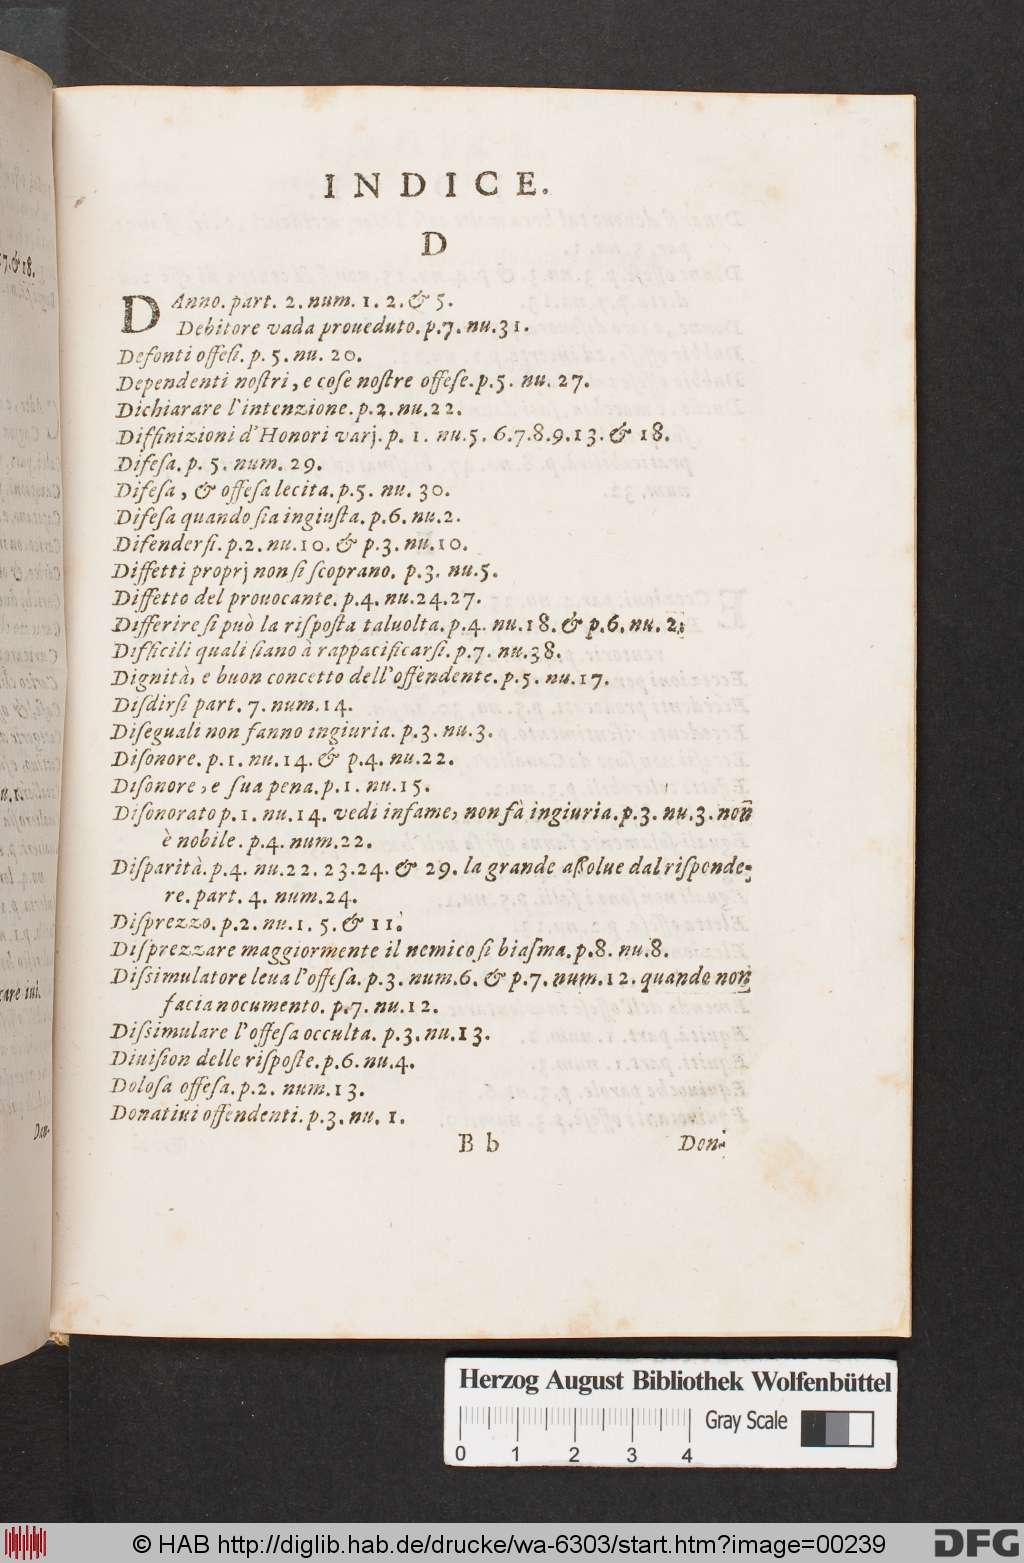 INDICE.
D
DAnno. part. 2. num. 1. 2. & 5.
Debitore vada proueduto. p.7. nu.31.
Defonti offeſi. p. 5. nu. 20.
Dependenti noſtri, e coſe noſtre offeſe. p.5. nu. 27.
Dichiarare l'intenzione. p.2. nu.22.
Diffinizioni d'Honori varj. p. 1. nu.5. 6.7.8.9.13. & 18.
Difeſa. p. 5. num. 29.
Difeſa, & offeſa lecita. p.5. nu. 30.
Difeſa quando ſia ingiuſta. p.6. nu.2.
Difenderſi. p.2. nu.10. & p.3. nu.10.
Diffetti proprj non ſi ſcoprano. p.3. nu.5.
Diffetto del prouocante. p.4. nu.24.27.
Differire ſi può la riſpoſta taluolta. p.4. nu.18. & p.6. nu. 2.
Difficili quali ſiano à rappacificarſi. p.7. nu.38.
Dignità, e buon concetto dell'offendente. p.5. nu.17.
Diſdirſi part. 7. num.14.
Diſeguali non fanno ingiuria. p.3. nu.3.
Diſonore. p.1. nu.14. & p.4. nu.22.
Diſonore, e ſua pena. p.1. nu.15.
Diſonorato p.1. nu.14. vedi infame, non fà ingiuria. p.3. nu.3. non
è nobile. p.4. num.22.
Diſparità. p.4. nu.22. 23.24. & 29. la grande aſſolue dal riſponde-
re. part. 4. num.24.
Diſprezzo. p.2. nu.1. 5. & 11.
Diſprezzare maggiormente il nemico ſi biaſma. p.8. nu.8.
Diſsimulatore leua l'offeſa. p.3. num.6. & p.7. num.12. quando non
facia nocumento. p.7. nu.12.
Diſsimulare l'offeſa occulta. p.3. nu.13.
Diuiſion delle riſpoſte. p.6. nu.4.
Doloſa offeſa. p.2. num.13.
Donatiui offendenti. p.3. nu. 1.
B b Don-
7. & 18.
u.1.
care iui.
Dan-
Herzog August Bibliothek Wolfenbüttel
Gray Scale
0 1 2 3 4
© HAB http://diglib.hab.de/drucke/wa-6303/start.htm?image=00239
DFG